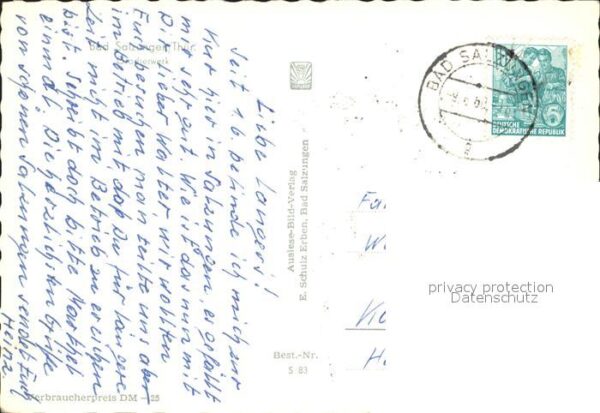 Bad Salzungen Thür.
Gradierwerk
Liebe Langers!
Seit 1.6. befinde ich mich zur
Kur hier in Salzungen, es gefällt
mir sehr gut. Wie ist das nun mit
Dir, lieber Walter wir wollten
Fur besorgen, man teilte uns aber
im Betrieb mit daß Du für längere
Zeit nicht im Betrieb zu erreichen
bist. Schreibt doch bitte
einmal. Die herzlichsten Grüße
vom schönen Salzungen sendet Euch
Heinz.
Verbraucherpreis DM -.25
Auslese-Bild-Verlag
E. Schulz Erben, Bad Salzungen
Best.-Nr.
S 83
BAD SALZUNGEN
DEUTSCHE
DEMOKRATISCHE REPUBLIK
Fa
W
K
H
privacy protection
Datenschutz